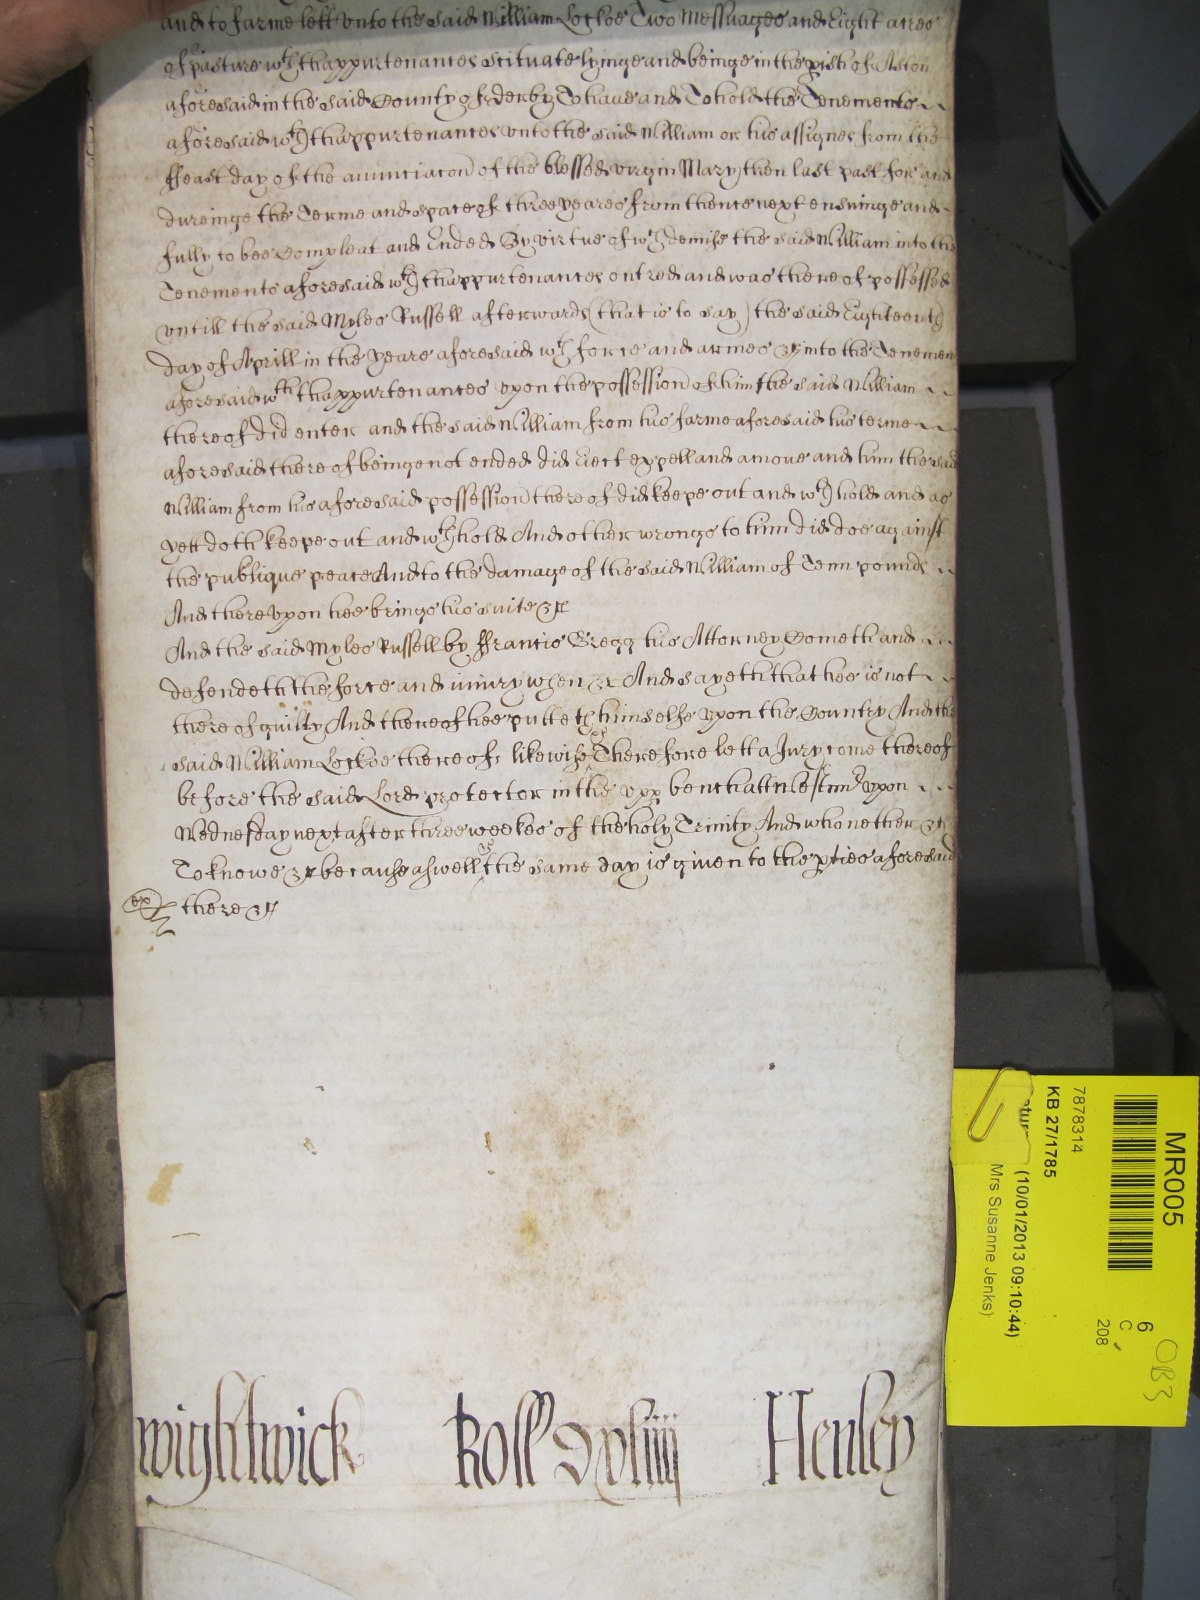 and to farme lett unto the said William Lockoe Two Messuages and Eight acres
of pasture wth thappurtenances scituate lyinge and beinge in the pish of Aston
aforesaid in the said County of derby To have and To hold the Tenements
aforesaid wth thappurtenances vnto the said William or his assignes from the
ffeast day of the annunciacon of the blessed virgin Mary then last past for and
dureinge the Terme and space of three yeares from thence next ensuinge and
fully to bee Compleat and Ended By virtue of wch demise the said William into the
Tenements aforesaid wth thappurtenances entred and was thereof possessed
vntill the said Myles Russell afterwards (that is to say) the said Eighteenth
day of Aprill in the yeare aforesaid wth force and armes &c into the Tenemen
aforesaid wth thappurtenances vpon the possession of him the said William
thereof did enter and the said William from his farme aforesaid his terme
aforesaid thereof beinge not ended did Eiect expell and amove and him the said
William from his aforesaid possession thereof did keepe out and wthhold and as
yett doth keepe out and wthhold And other wrongs to him did doe against
the publique peace And to the damage of the said William of Tenn pounds
And therevpon hee brings his suite &c
And the said Myles Russell by ffrancis Gregg his Attorney Cometh and
defendeth the force and iniury when &c And sayeth that hee is not
thereof guilty And thereof hee putteth himselfe vpon the Country And the
said William Lockoe thereof likewise &c Therefore lett a Jury come thereof
before the said Lord protector in the vpp bench att Westmr vpon
Wednesday next after three weekes of the holy Trinity And who neither &c
To knowe &c because aswell &c the same day is given to the pties aforesaid
ex there &c
Wightwick Roll Dxliiij Henley
MR005
7878314
KB 27/1785
(10/01/2013 09:10:44)
Mrs Susanne Jenks)
6
C
208
OB3